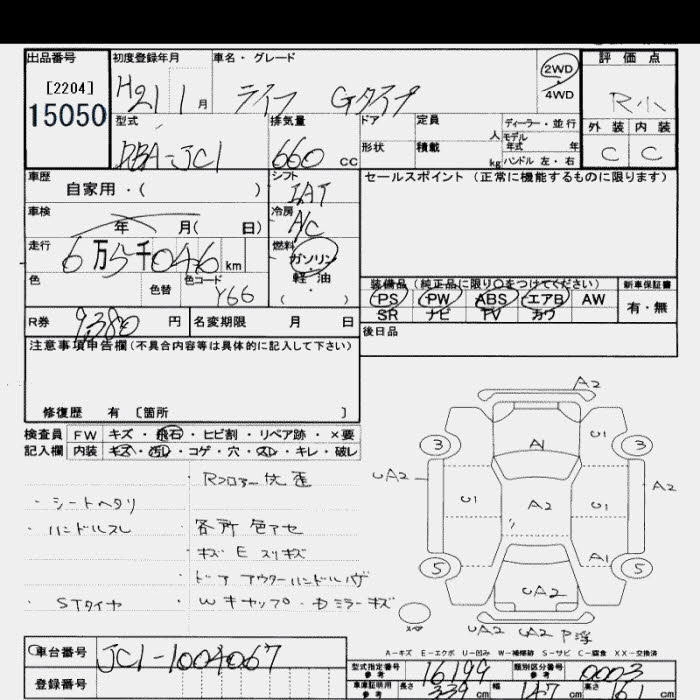 出品番号 初度登録年月 車名・グレード 2WD 評価点
[2204] H21 1月 ライフ Gタイプ 4WD R小
15050 型式 排気量 ドア 定員 人 ディーラー・並行 外装 内装
DBA-JC1 660cc 形状 積載 kg モデル年式 年 ハンドル 左・右 C C
車歴 シフト セールスポイント(正常に機能するものに限ります)
自家用・( ) IAT
車検 年 月( 日) 冷房 A/C
走行 6万5千046km 燃料 ガソリン
色 色替 色コード Y66 軽油 ( ・ )
装備品(純正品に限り○をつけてください) 新車保証書
PS PW ABS エアB AW 有・無
SR ナビ TV カワ
R券 9,380円 名変期限 月 日 後日品
注意事項申告欄(不具合内容等は具体的に記入して下さい)
修復歴 有 〔箇所 〕
検査員 FW キズ・飛石・ヒビ割・リペア跡・×要
記入欄 内装 キズ・汚レ・コゲ・穴・スレ・キレ・破レ
・シートヘタリ
・ハンドルスレ
・STタイヤ
・Rフロアー伏 歪
・各所 色アセ
・キズ E スリキズ
・ドア アウターハンドルハゲ
・Wキャップ・ドミラーキズ
A2
3 A1 U1 3
UA2 U1 A2 U1 A2
5 A1 5
UA2
スペア UA2 UA2 P浮
A-キズ E-エクボ U-凹み W-補修跡 S-サビ C-腐食 XX-交換済
車台番号 JC1-1004067
登録番号
型式指定番号 参考 16199 類別区分番号 参考 0003
車庫証明用 参考 長さ 339cm 幅 147cm 高さ 161cm